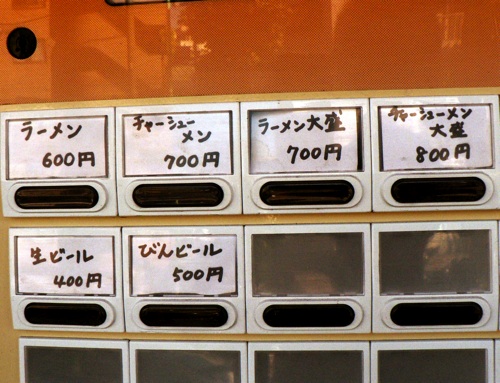 ラーメン
600円
チャーシュー
メン
700円
ラーメン大盛
700円
チャーシューメン
大盛
800円
生ビール
400円
びんビール
500円